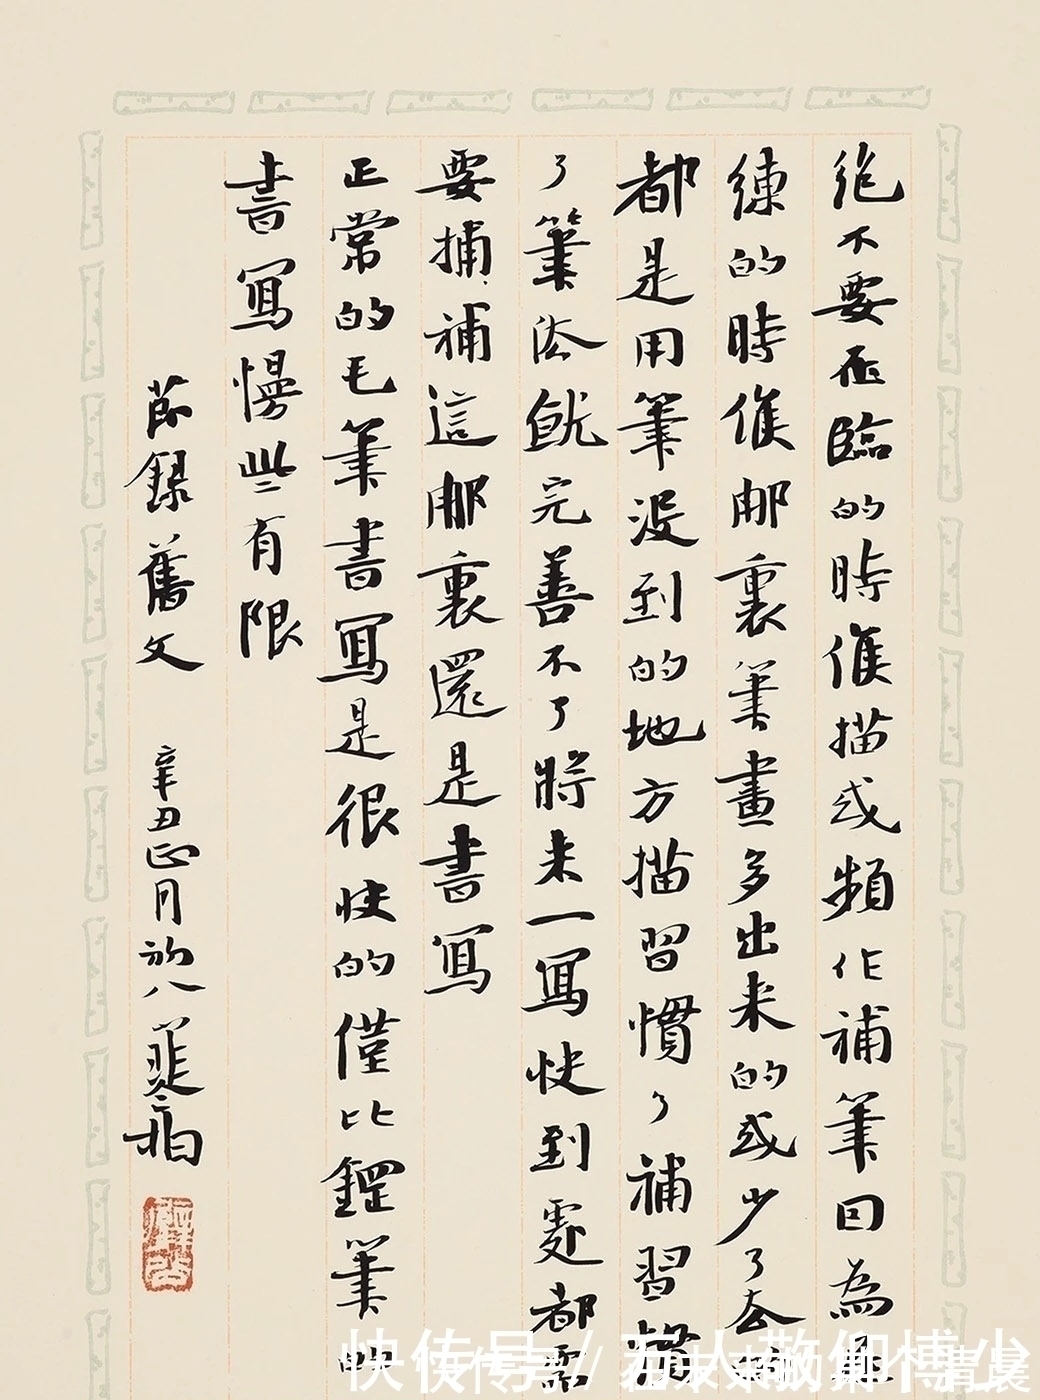 絶不要在臨的時候描或頻作補筆因為在
練的時候那裏筆畫多出來的或少了去
都是用筆沒到的地方描習慣了補習慣
了筆法就完善不了將來一寫快到處都需
要捕補這那裏還是書寫
正常的毛筆書寫是很快的僅比鋼筆
書寫慢些有限
節録舊文 辛丑正月初八
快传号/万人敬仰博少